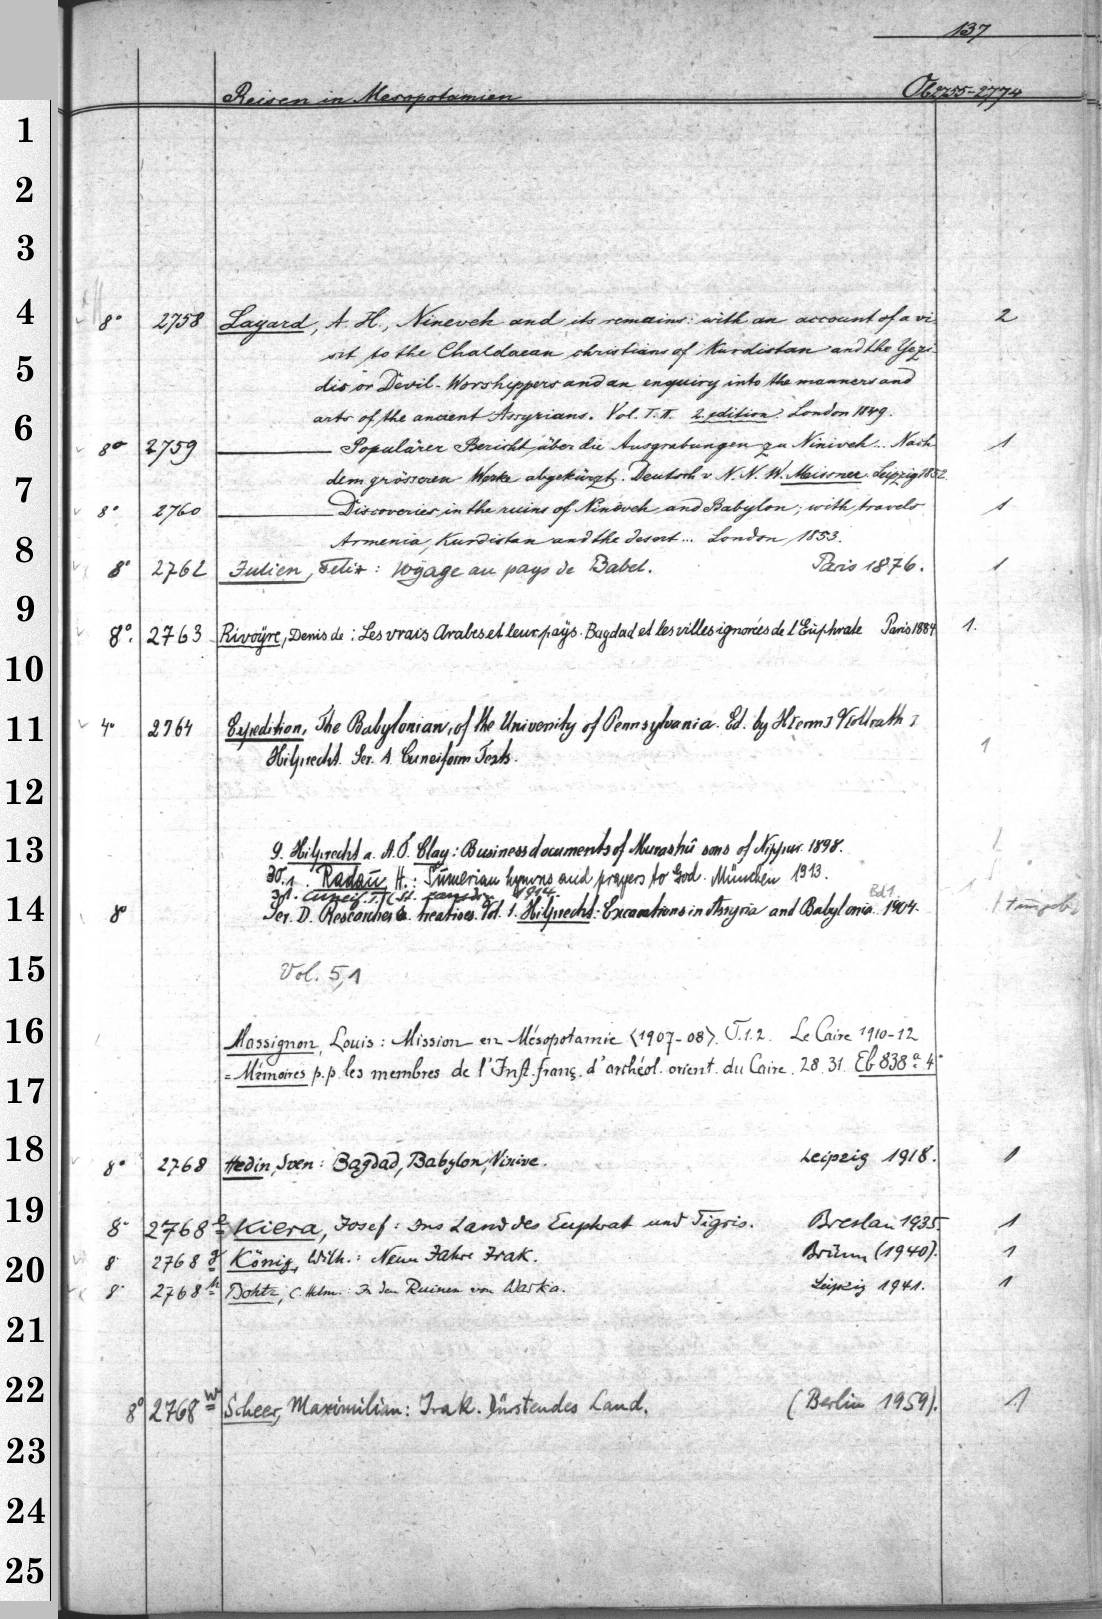 137
Reisen in Mesopotamien Ob 2755-2774
1
2
3
4
8° 2758 Layard, A. H., Nineveh and its remains: with an account of a vi- 2
sit to the Chaldaean christians of Kurdistan and the Yezi-
5
dis or Devil-Worshippers and an enquiry into the manners and
arts of the ancient Assyrians. Vol. I. II. 2. edition. London 1849.
6
8° 2759 ——— Populärer Bericht über die Ausgrabungen zu Niniveh.. Nach 1
dem grösseren Werke abgekürzt. Deutsch v. N. N. W. Meissner. Leipzig 1852
7
8° 2760 ——— Discoveries in the ruins of Nineveh and Babylon; with travels 1
Armenia, Kurdistan and the desert... London 1853.
8
8° 2762 Julien, Felix: Voyage au pays de Babel. Paris 1876. 1
9
8°. 2763 Rivoÿre, Denis de: Les vrais Arabes et leur paÿs. Bagdad et les villes ignorées de l'Euphrate Paris 1884 1.
10
11
4° 2764 Expedition, The Babylonian, of the University of Pennsylvania. Ed. by H[erm] V[ollrath]
Hilprecht. Ser. A. Cuneiform Texts. 1
12
13
9. Hilprecht a. A. T. Clay: Business documents of Murashû sons of Nippur. 1898.
30,1. Radau, H.: Sumerian hymns and prayers to God. München 1913.
1914.
14
8° Ser. D. Researches a. treatises. Vol. 1. Hilprecht: Excavations in Assyria and Babylonia. Bd 1 1904. 1
15
Vol. 5,1
16
Massignon, Louis: Mission en Mésopotamie <1907-08>. T. 1. 2. Le Caire 1910-12
= Mémoires p. p. les membres de l'Inst. franç. d'archéol. orient. du Caire. 28. 31. Eb 838a 4°
17
18
8° 2768 Hedin, Sven: Bagdad, Babylon, Ninive. Leipzig 1918. 1
19
8° 2768 e Kiera, Josef: Ins Land des Euphrat und Tigris. Breslau 1935. 1
20
8° 2768 g König, Wilh.: Neun Jahre Irak. Brünn (1940). 1
8° 2768 h Dohtz, C. Helm.: In den Ruinen von Warka. Leipzig 1941. 1
21
22
8° 2768 w Scheer, Maximilian: Irak. Dürstendes Land. (Berlin 1959). 1
23
24
25